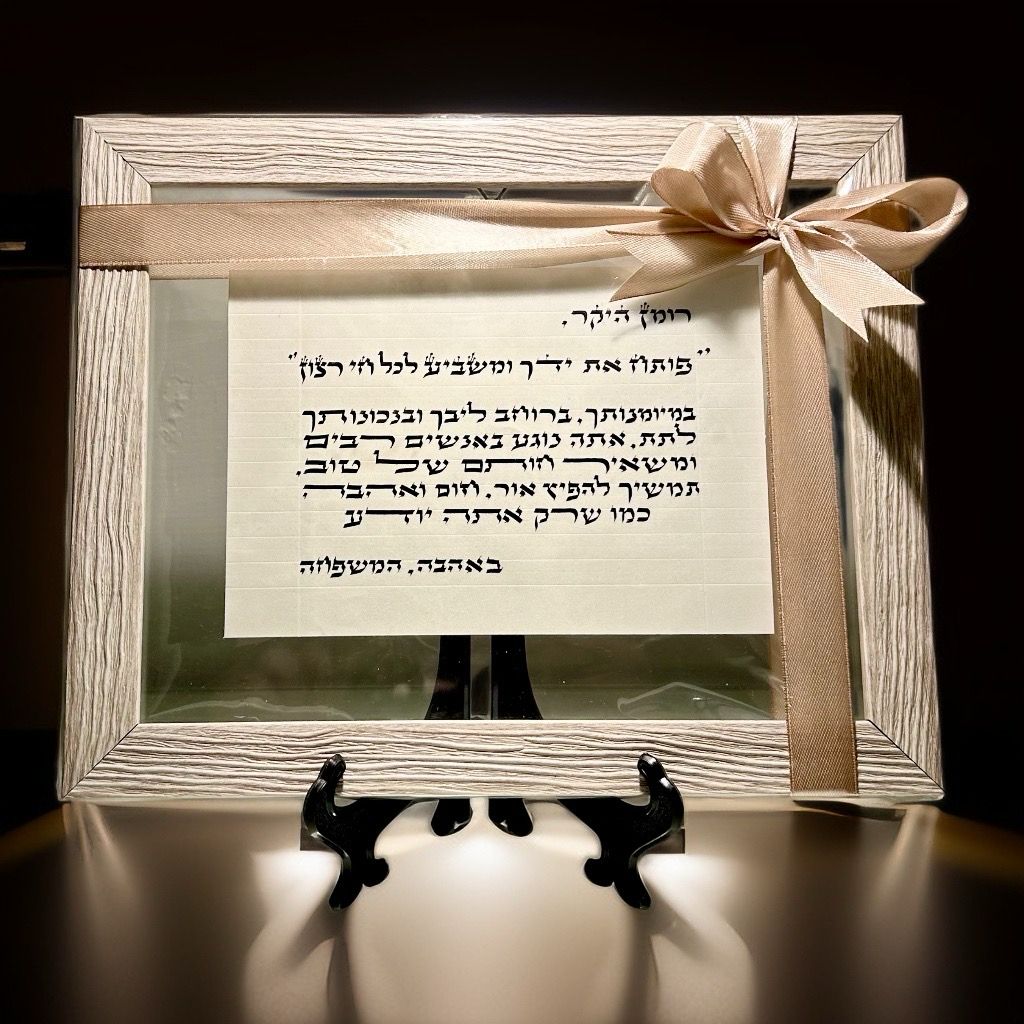 רומן היקר,
"פותח את ידך ומשביע לכל חי רצון"
במיומנותך, ברוחב ליבך ובנכונותך
לתת, אתה נוגע באנשים רבים
ומשאיר חותם של טוב.
תמשיך להפיץ אור, חום ואהבה
כמו שרק אתה יודע
באהבה, המשפחה